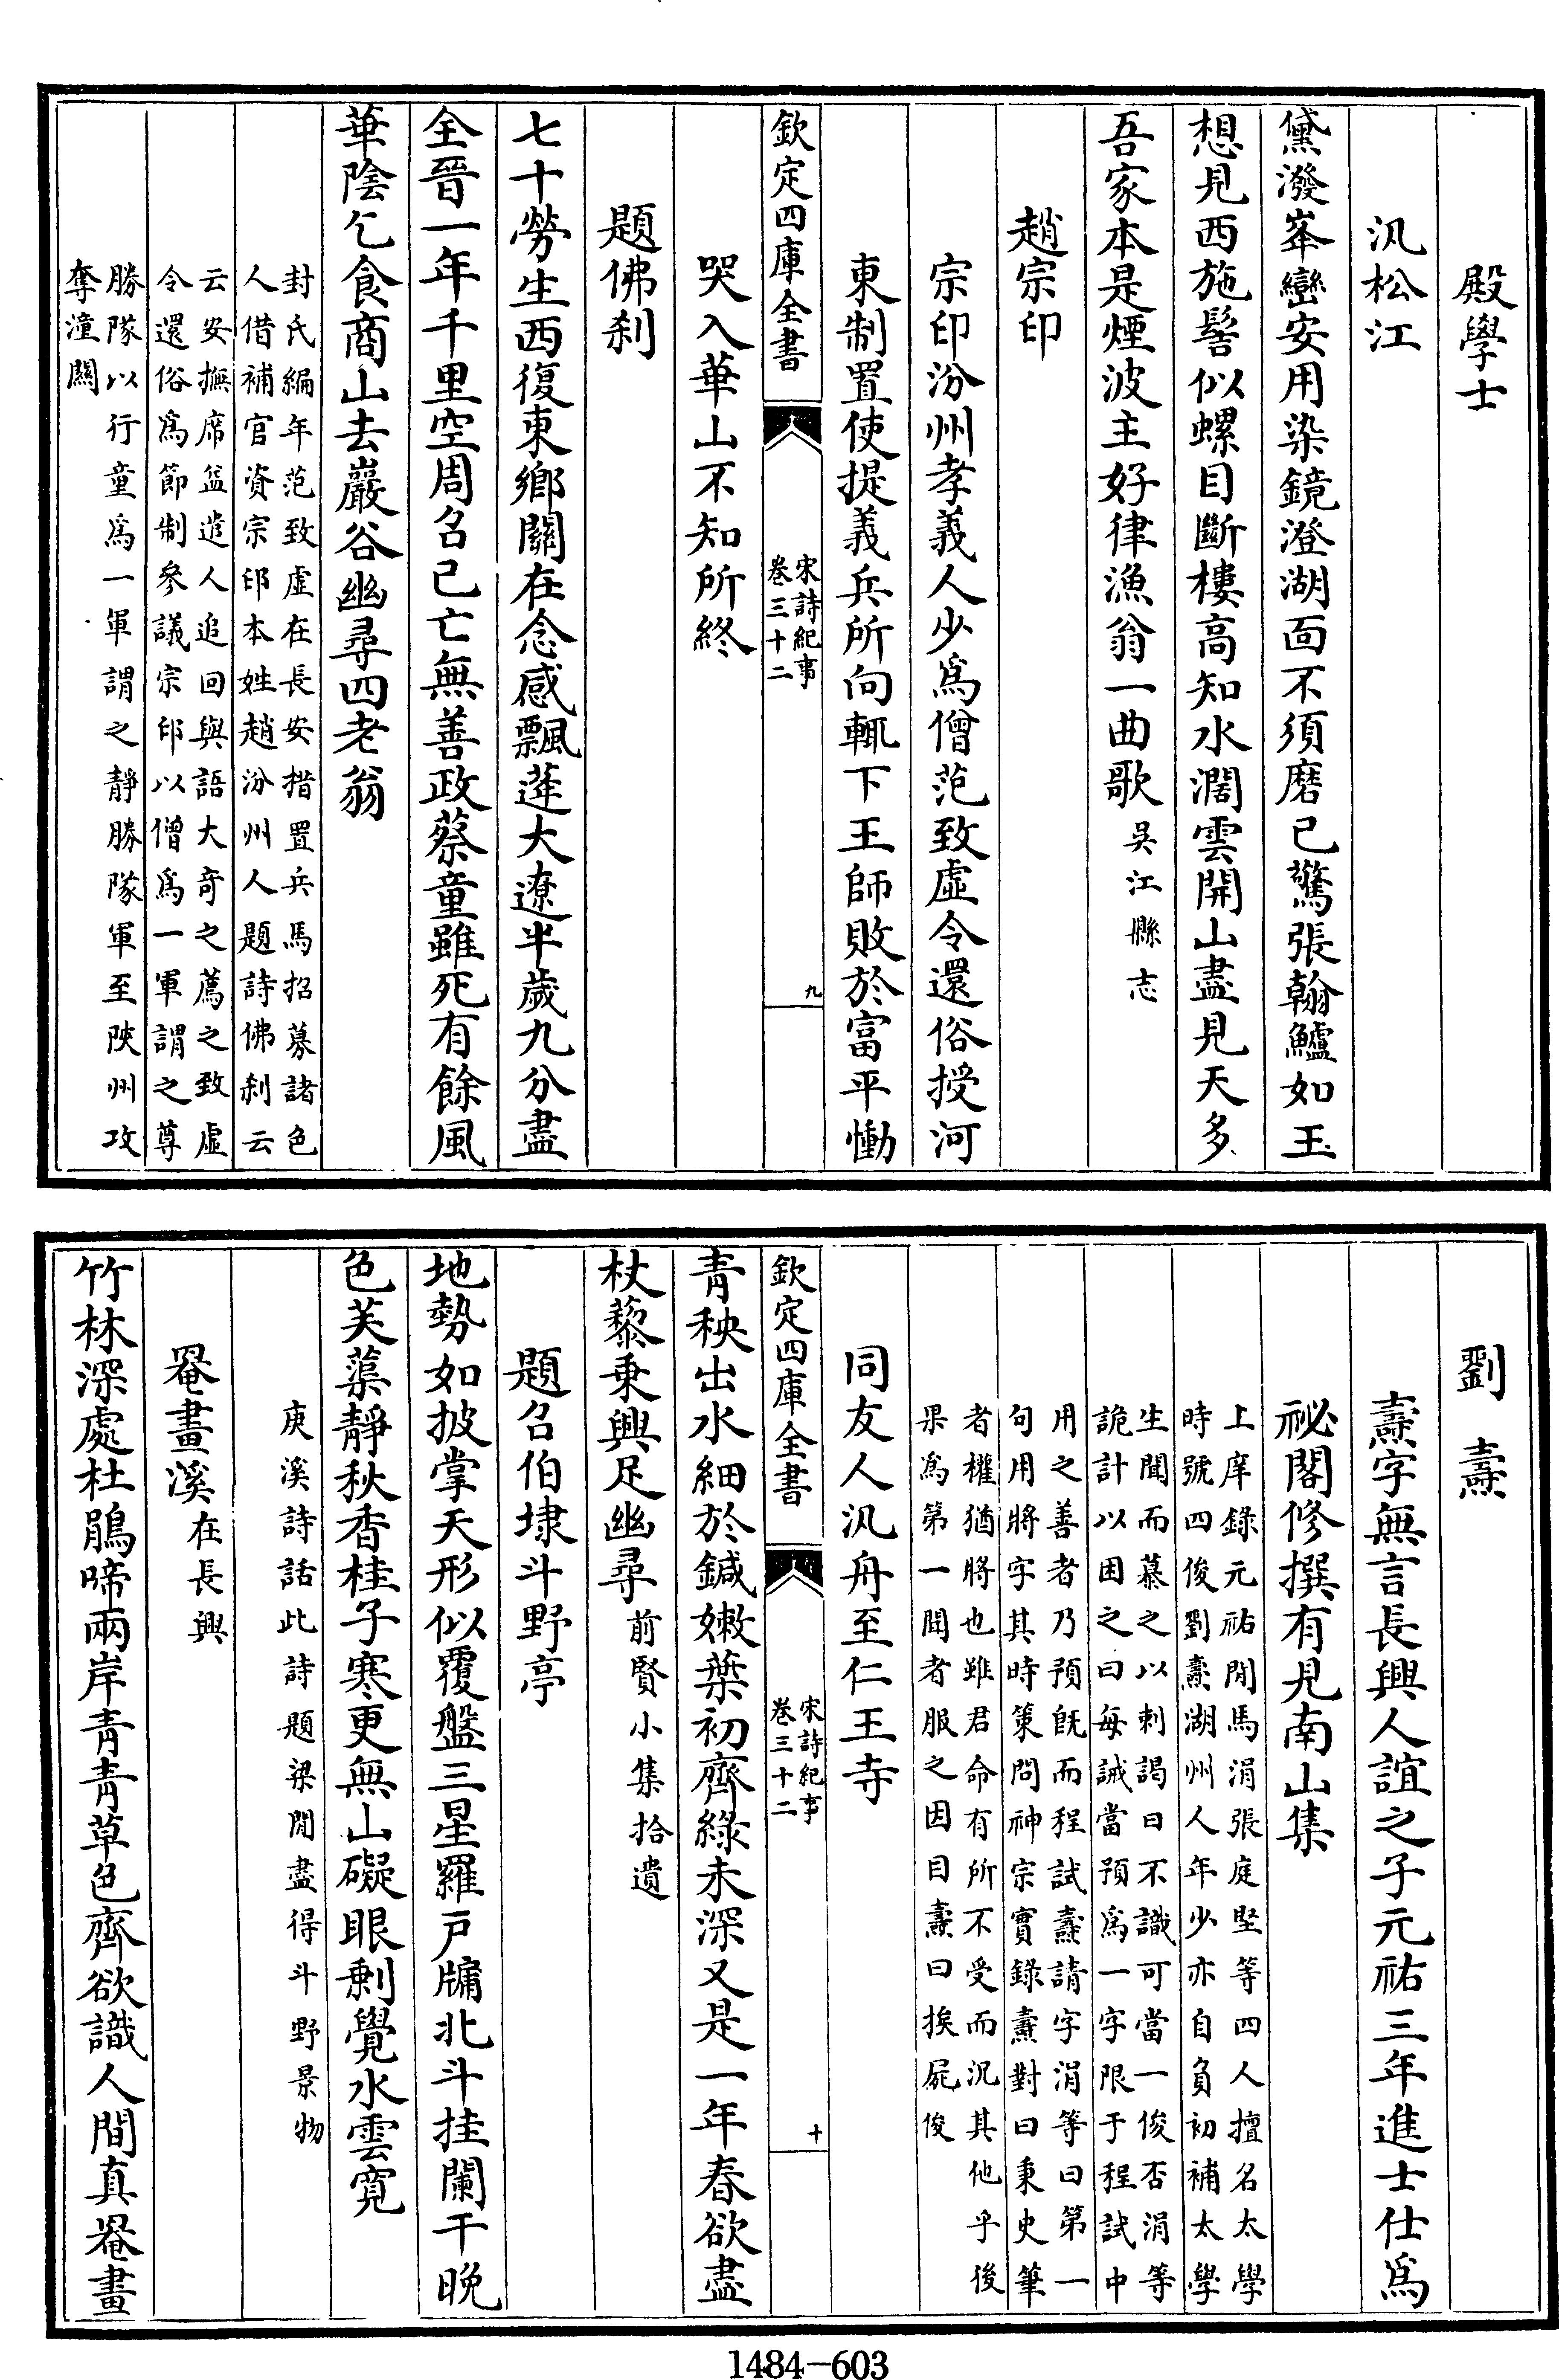 殿學士
汎松江
黛潑峯巒安用染鏡澄湖面不須磨已驚張翰鱸如玉
想見西施髻似螺目斷樓高知水濶雲開山盡見天多
吾家本是煙波主好律漁翁一曲歌吳江縣志
趙宗印
宗印汾州孝義人少爲僧范致虛令還俗授河
東制置使提義兵所向輒下王師敗於富平慟
欽定四庫全書
宋詩紀事
卷三十二
九
哭入華山不知所終
題佛刹
七十勞生西復東鄉關在念感飄蓬大遼半歲九分盡
全晉一年千里空周召已亡無善政蔡童雖死有餘風
華陰乞食商山去巖谷幽尋四老翁
封氏編年范致虛在長安措置兵馬招募諸色
人借補官資宗印本姓趙汾州人題詩佛刹云
云安撫席益遣人追回與語大奇之薦之致虛
令還俗爲節制參議宗印以僧爲一軍謂之尊
勝隊以行童爲一軍謂之靜勝隊軍至陜州攻
奪潼關
劉燾
燾字無言長興人誼之子元祐三年進士仕爲
祕閣修撰有見南山集
上庠錄元祐間馬涓張庭堅等四人擅名太學
時號四俊劉燾湖州人年少亦自負初補太學
生聞而慕之以刺謁曰不識可當一俊否涓等
詭計以困之曰每誡當預爲一字限于程試中
用之善者乃預旣而程試燾請字涓等曰第一
句用將字其時策問神宗實錄燾對曰秉史筆
者權猶將也雖君命有所不受而況其他乎後
果爲第一聞者服之因目燾曰挨屍俊
同友人汎舟至仁王寺
欽定四庫全書
宋詩紀事
卷三十二
十
青秧出水細於鍼嫩葉初齊綠未深又是一年春欲盡
杖藜乗興足幽尋前賢小集拾遺
題召伯埭斗野亭
地勢如披掌天形似覆盤三星羅戸牖北斗挂闌干晚
色芙蕖靜秋香桂子寒更無山礙眼剰覺水雲寛
庚溪詩話此詩題梁間盡得斗野景物
罨畫溪在長興
竹林深處杜鵑啼兩岸青青草色齊欲識人間真罨畫
1484-603